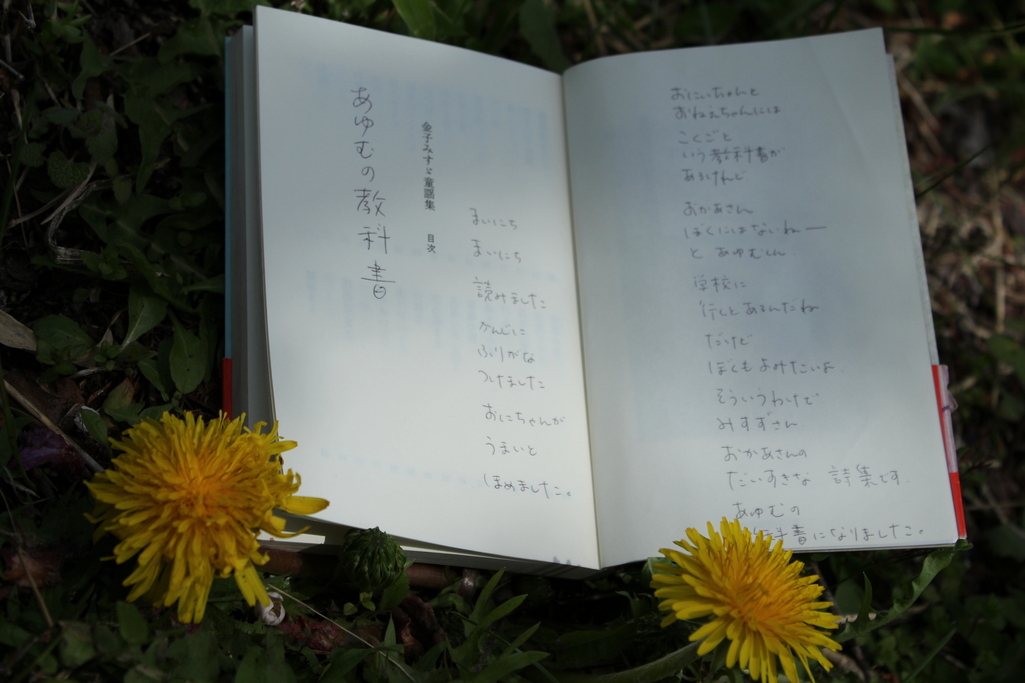 あゆむの教科書
金子みすゞ童謡集 目次
おにいちゃんと
おねえちゃんには
こくごと
いう教科書が
あるけんど
おかあさん
ぼくにはないねー
と あゆむくん
学校に
行くとあるんだね
だけど
ぼくもよみたいよ
そういうわけで
みすずさん
おかあさんの
だいすきな 詩集です
あゆむの
科書になりました。
まいにち
まいにち
読みました
かんじに
ふりがな
つけました
おにちゃんが
うまいと
ほめました。